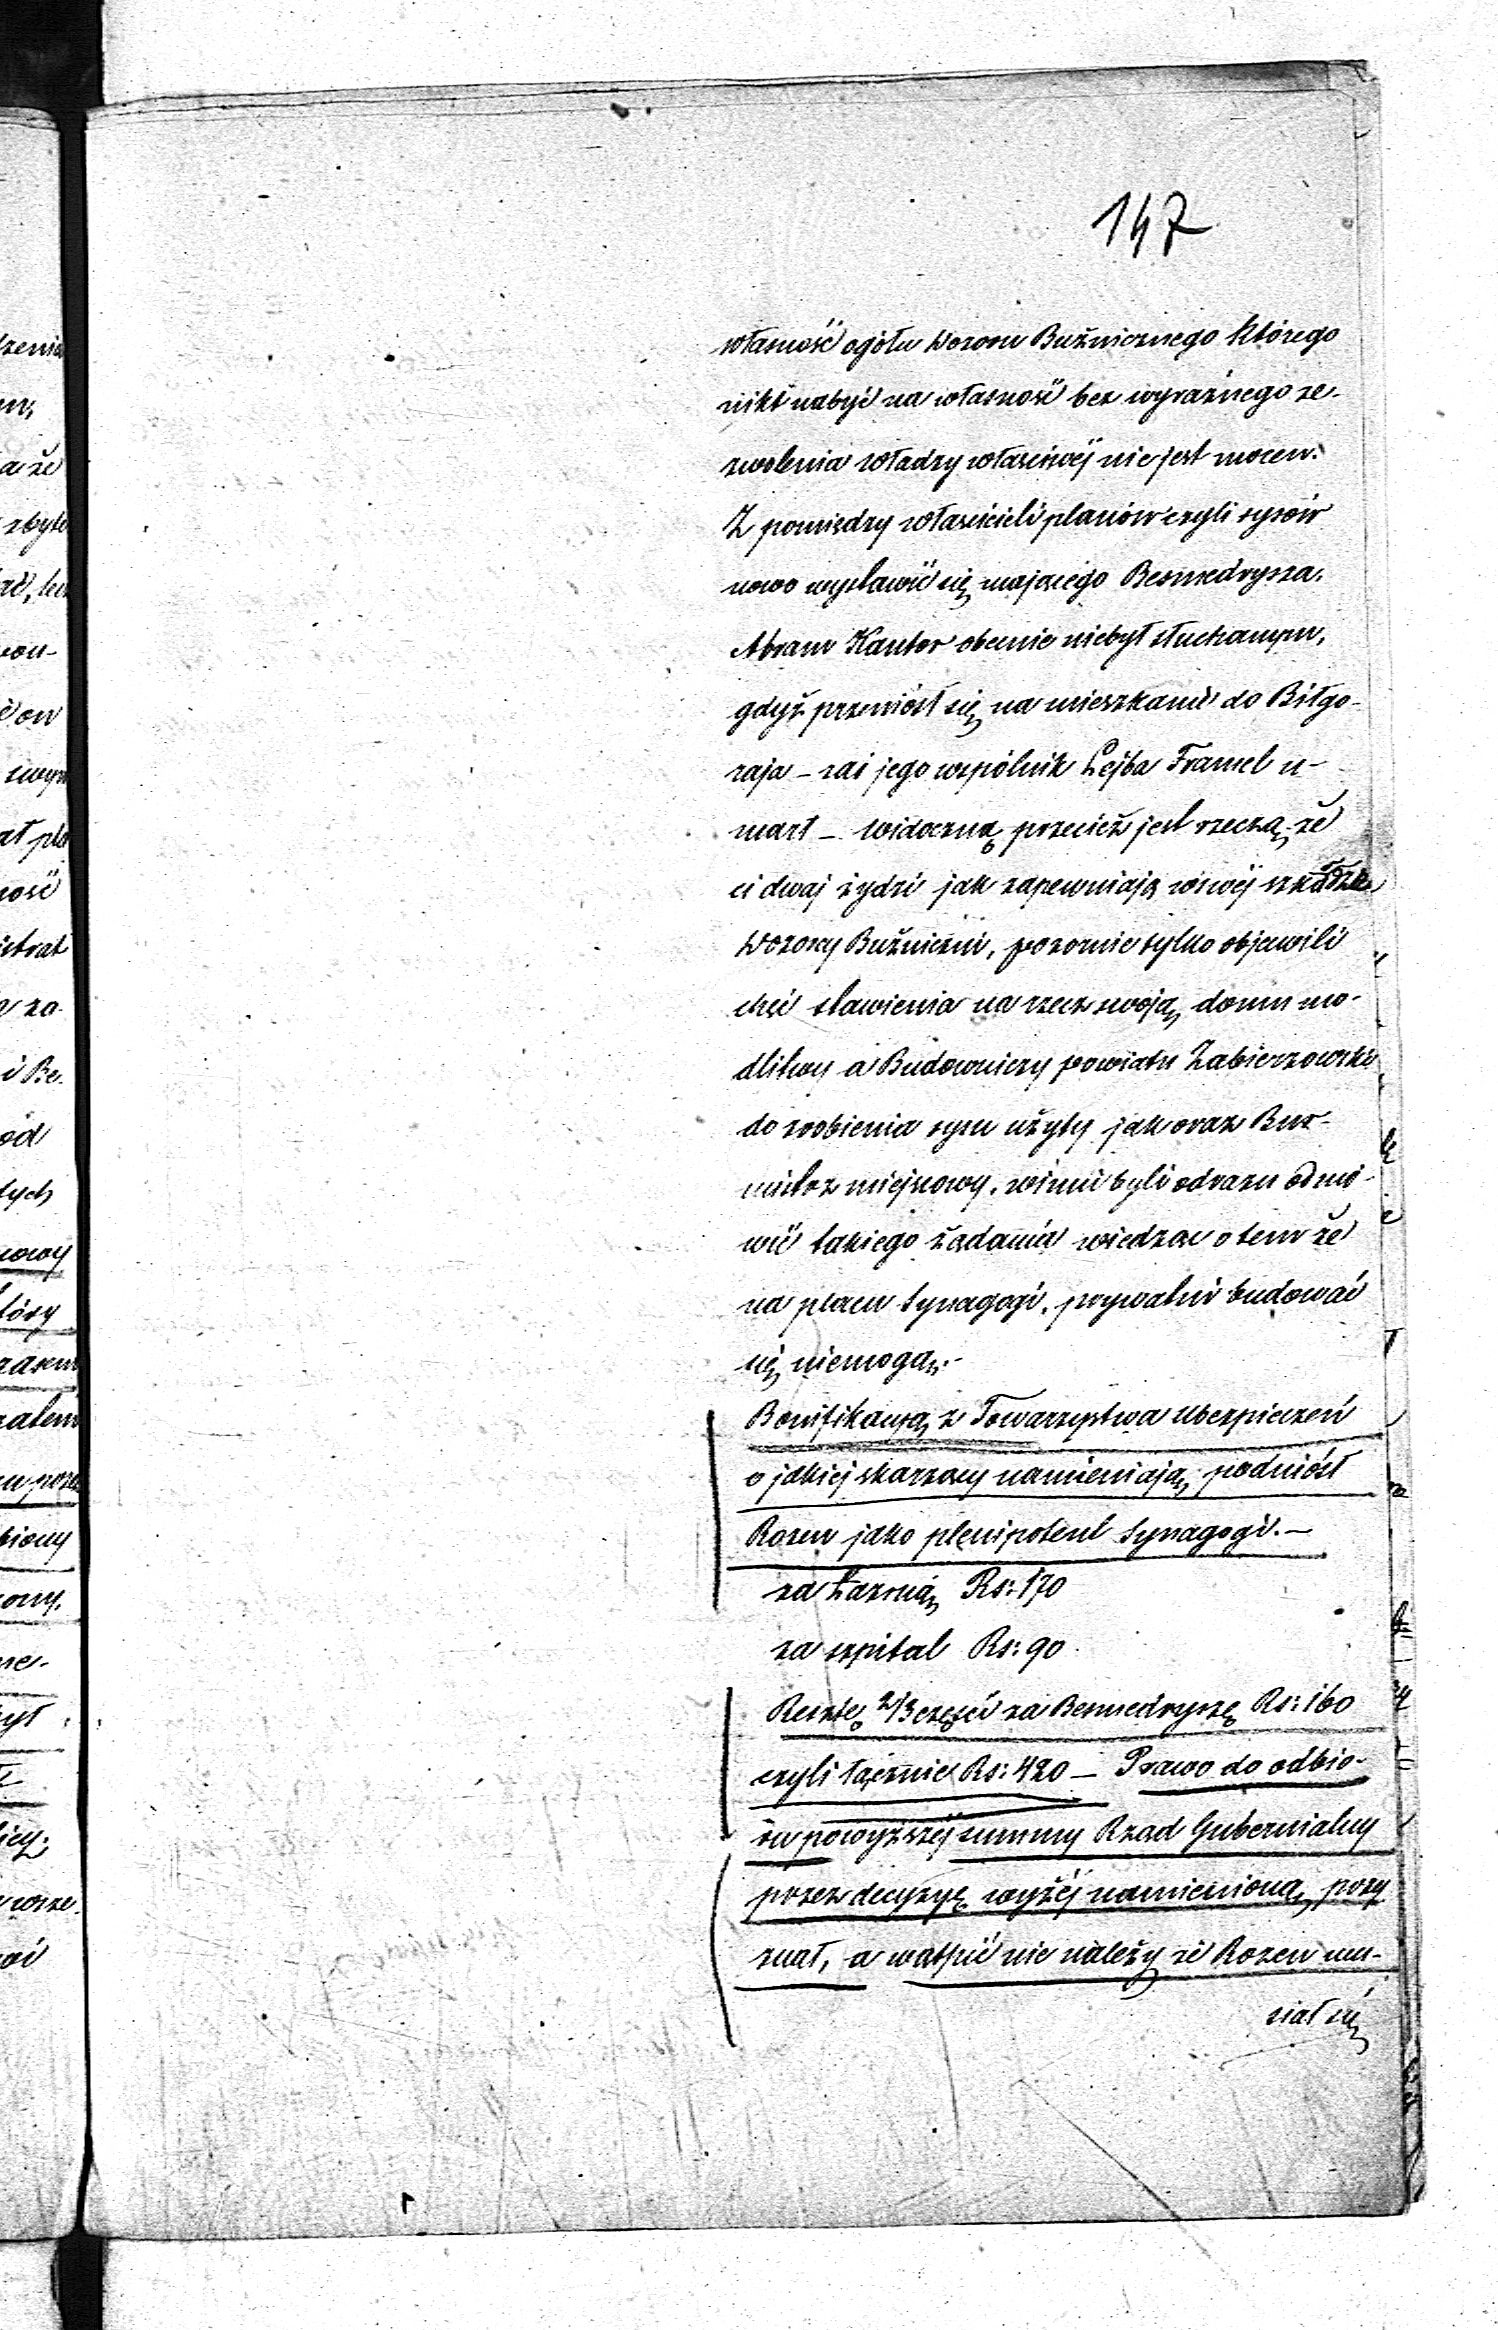 147
własność ogółu Dozoru Bużnicznego którego
nikt nabyć na własność bez wyraźnego ze-
zwolenia władzy właściwéj nie jest mocen.
Z pomiędzy właścicieli planów czyli rysów
nowo wystawić się mającego Besmedrysza.
Abram Kantor obecnie niebył słuchanym,
gdyż przeniósł się na mieszkanie do Biłgo-
raja – zaś jego wspólnik Lejba Framel u-
marł – widoczną przecież jest rzeczą że
ci dwaj żydzi jak zapewniają
Dozorcy Bużniczni, pozornie tylko objawili
chęć stawienia na rzecz swoją domu mo-
dlitwy a Budowniczy powiatu Zabierzowski
do zrobienia rysu użyty jak oraz Bur-
mistrz miejscowy, winni byli odrazu odmó-
wić takiego żądania wiedząc o tem że
na placu Synagogi, prywatni budować
się niemogą.-
Bonifikacyą z Towarzystwa Ubezpieczeń
o jakiej skarzący namieniają podniósł
Rozen jako plenipotent Synagogi.-
za Łaznią Rs: 170
za szpital Rs: 90
Resztę 2/3 części za Besmedryszę Rs: 160
czyli łącznie Rs: 420 – Prawo do odbio-
ru powyższéj summy Rząd Gubernialny
przez decyzyę wyżéj namienioną przy
znał, a wątpić nie należy że Rozen mu-
siał się